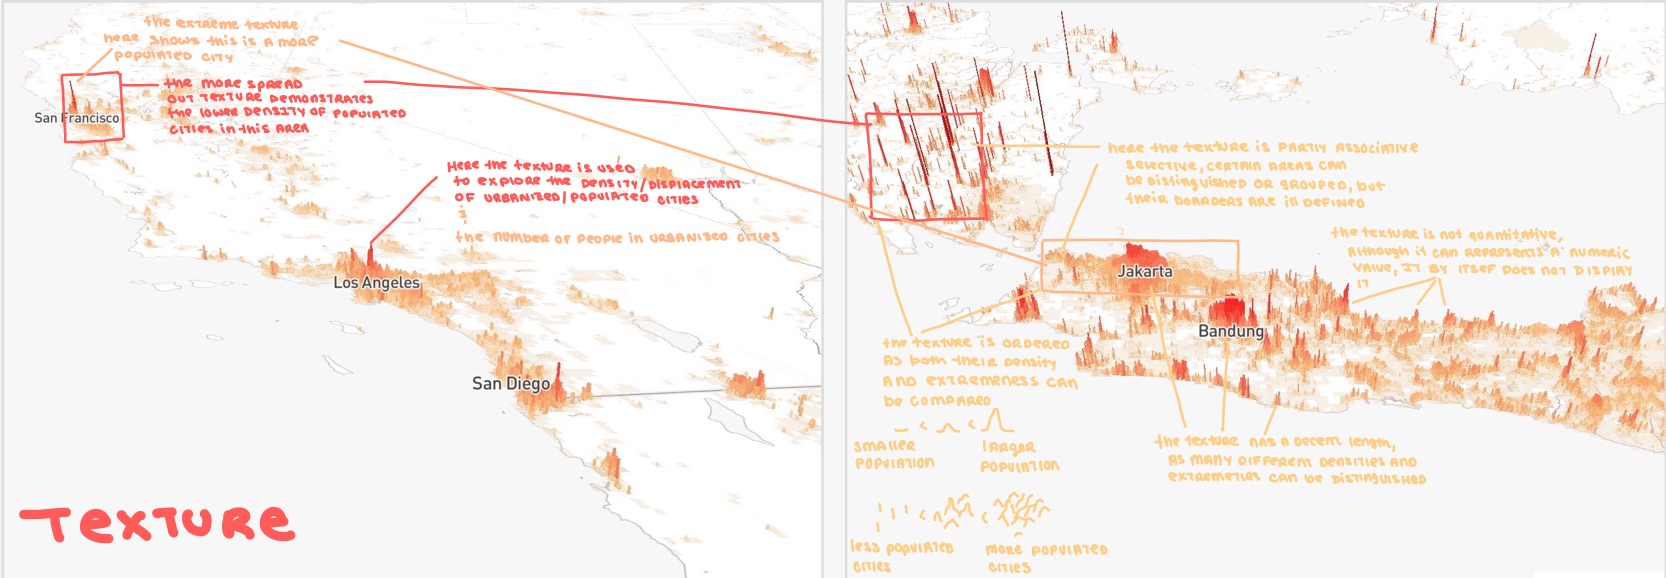 the extreme texture
here shows this is a more
populated city
the more spread
out texture demonstrates
the lower density of populated
cities in this area
San Francisco
Here the texture is used
to explore the density/displacement
of urbanized/populated cities
&
the number of people in urbanized cities
Los Angeles
San Diego
Texture
here the texture is partly associative
selective, certain areas can
be distinguished or grouped, but
their boarders are ill defined
the texture is not quantitative,
although it can represents 'a' numeric
value, it by itself does not display
it
Jakarta
Bandung
the texture is ordered
as both their density
and extremeness can
be compared
< <
smaller
population
larger
population
the texture has a decent length,
as many different densities and
extremeties can be distinguished
< <
less populated
cities
more populated
cities